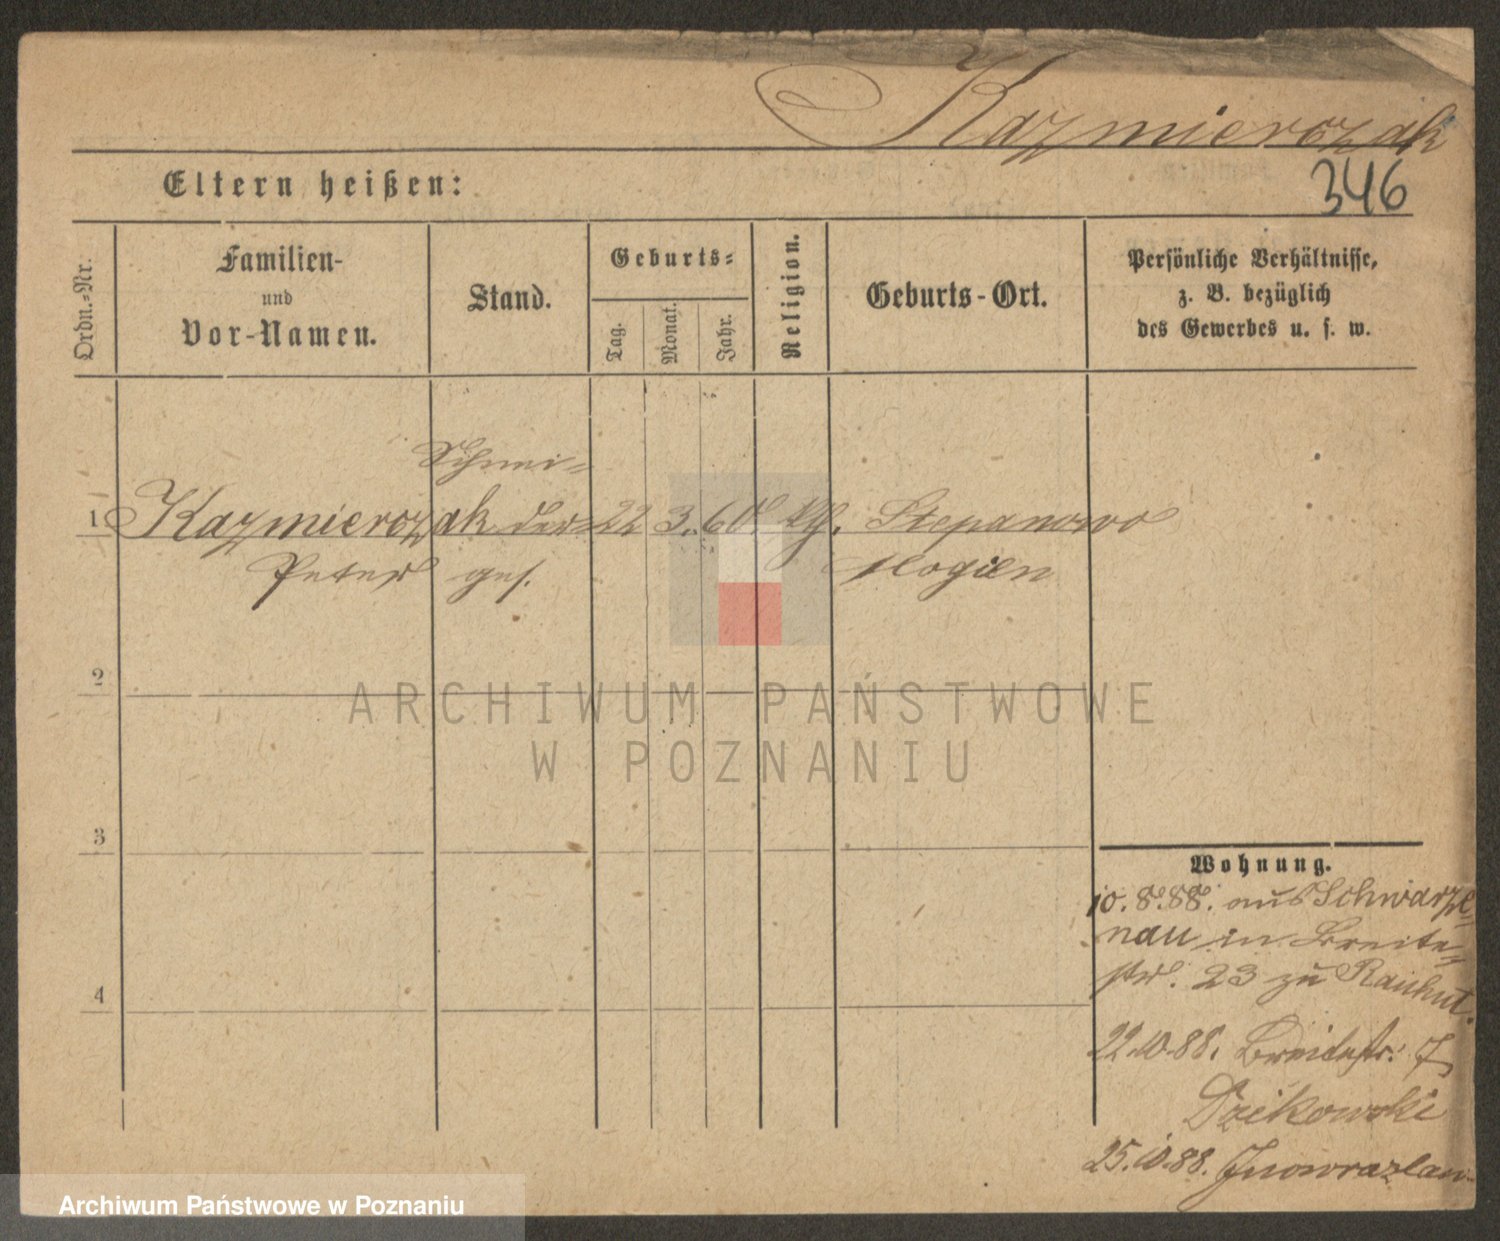 Kazmierczak
Eltern heißen:
346
Ordn.=Nr.
Familien-
und
Vor-Namen.
Stand.
Geburts=
Tag.
Monat.
Jahr.
Religion.
Geburts-Ort.
Persönliche Verhältnisse,
z. B. bezüglich
des Gewerbes u. s. w.
Schnei=
1 Kazmierczak der= 22 3. 60. kth. Stepanowo
Peter ges. Mogilen
2
ARCHIWUM PAŃSTWOWE
W POZNANIU
3
Wohnung.
10.8.88. aus Schwarze=
nau in Breite=
str. 23 zu Rauhut.
4
22.10.88. Breitestr. 7
Dzikowski
25.10.88. Inowrazlaw
Archiwum Państwowe w Poznaniu